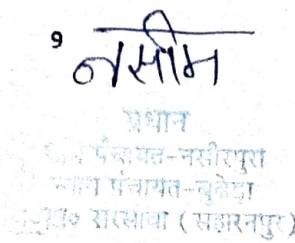 9
नसीम
प्रधान
पंचायत-नसीरपुरा
न्याय पंचायत-बुढेड़ा
सरसावा ( सहारनपुर )